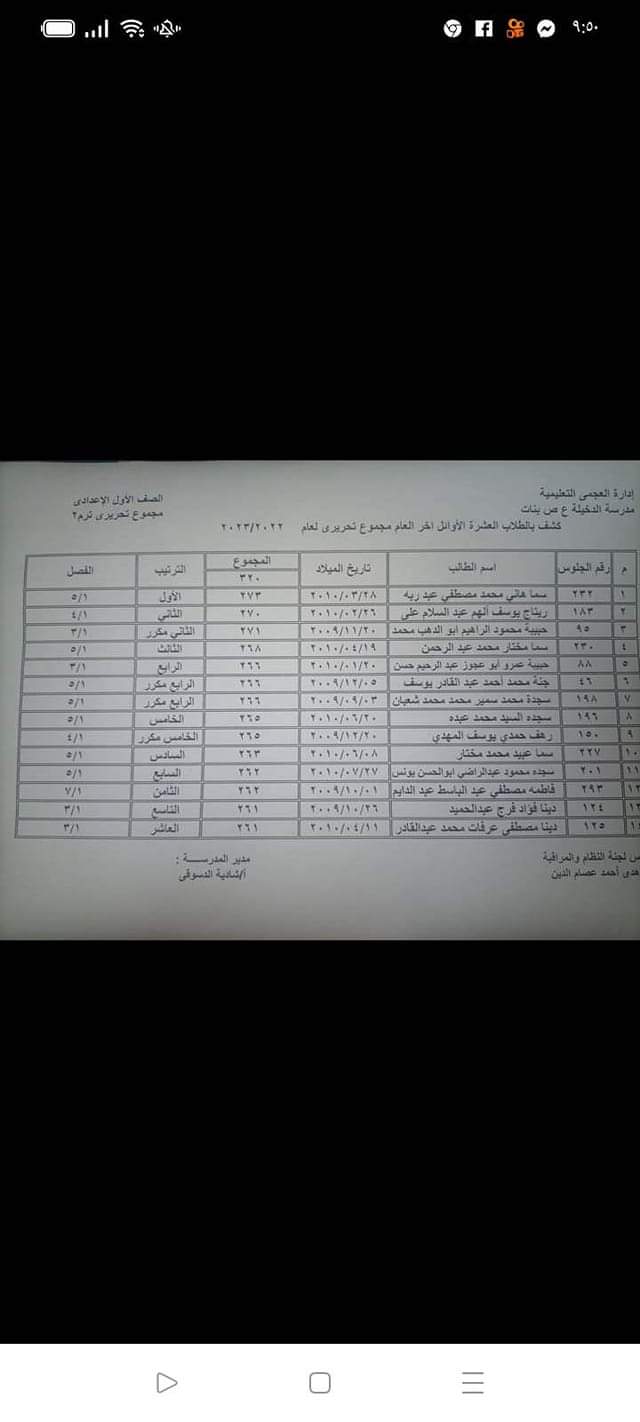 ٩:٥٠
إدارة العجمى التعليمية
الصف الأول الإعدادى
مدرسة الدخيلة ع ص بنات
مجموع تحريرى ترم٢
كشف بالطلاب العشرة الأوائل اخر العام مجموع تحريرى لعام ٢٠٢٣/٢٠٢٢
م رقم الجلوس اسم الطالب تاريخ الميلاد المجموع الترتيب الفصل
٣٢٠
١ ٢٣٢ سما هاني محمد مصطفي عبد ربه ٢٠١٠/٠٣/٢٨ ٢٧٣ الأول ٥/١
٢ ١٨٣ ريتاج يوسف الهم عبد السلام على ٢٠١٠/٠٢/٢٦ ٢٧٠ الثاني ٤/١
٣ ٩٥ حبيبة محمود ابو الدهب محمد ٢٠٠٩/١١/٢٠ ٢٧١ الثاني مكرر ٣/١
٤ ٢٣٠ سما مختار محمد عبد الرحمن ٢٠١٠/٠٤/١٩ ٢٦٨ الثالث ٥/١
٥ ٨٨ حبيبة عمرو ابو عجوز عبد الرحيم حسن ٢٠١٠/٠١/٢٠ ٢٦٦ الرابع ٣/١
٦ ٤٦ جنة محمد أحمد عبد القادر يوسف ٢٠٠٩/١٢/٠٥ ٢٦٦ الرابع مكرر ٥/١
٧ ١٩٨ سجدة محمد سمير محمد محمد شعبان ٢٠٠٩/٠٩/٠٣ ٢٦٦ الرابع مكرر ٥/١
٨ ١٩٦ سجده السيد محمد عبده ٢٠١٠/٠٦/٢٠ ٢٦٥ الخامس ٥/١
٩ ١٥٠ رهف حمدي يوسف المهدي ٢٠٠٩/١٢/٢٠ ٢٦٥ الخامس مكرر ٤/١
١٠ ٢٢٧ سما عبيد محمد مختار ٢٠١٠/٠٦/٠٨ ٢٦٣ السادس ٥/١
١١ ٢٠١ سجده محمود عبدالراضي ابوالحسن يونس ٢٠١٠/٠٧/٢٧ ٢٦٢ السابع ٥/١
١٢ ٢٩٣ فاطمه مصطفي عبد الباسط عبد الدايم ٢٠٠٩/١٠/٠١ ٢٦٢ الثامن ٧/١
١٣ ١٢٤ دينا فؤاد فرج عبدالحميد ٢٠٠٩/١٠/٢٦ ٢٦١ التاسع ٣/١
١٢٥ دينا مصطفى عرفات محمد عبدالقادر ٢٠١٠/٠٤/١١ ٢٦١ العاشر ٣/١
لجنة النظام والمراقبة
مدير المدرســـة :
هدى أحمد عصام الدين
أ/شادية الدسوقى